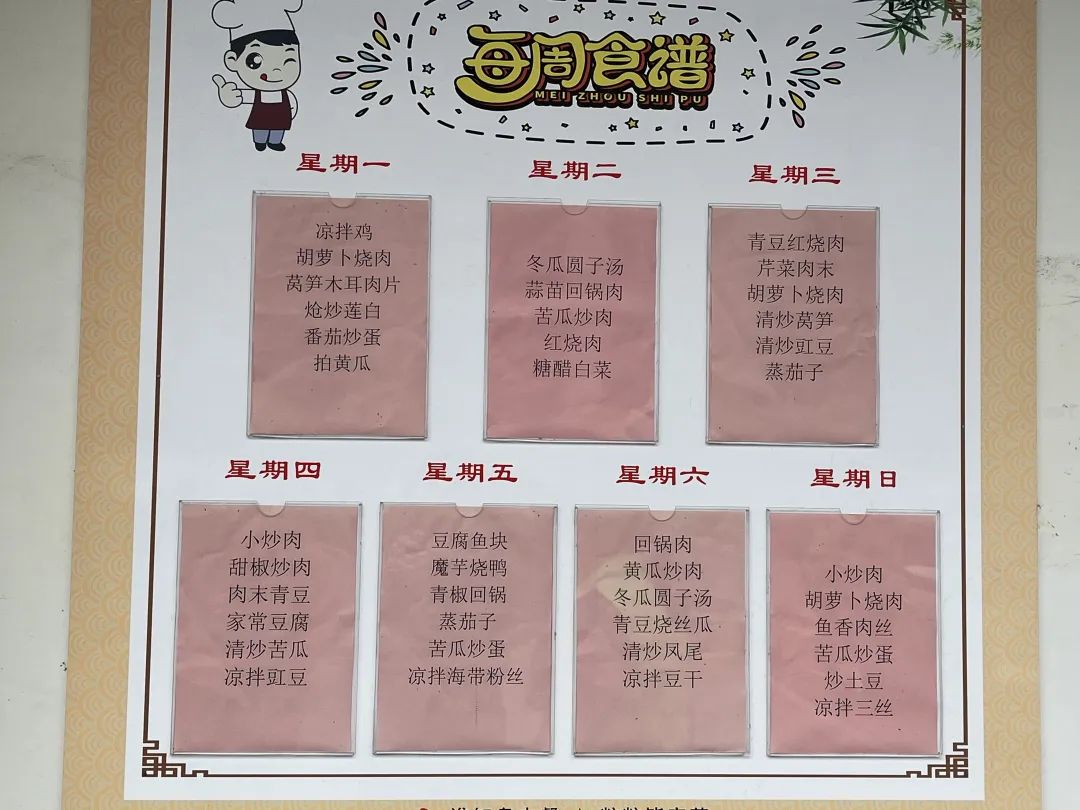 每周食谱
MEI ZHOU SHI PU
星期一
凉拌鸡
胡萝卜烧肉
莴笋木耳肉片
炝炒莲白
番茄炒蛋
拍黄瓜
星期二
冬瓜圆子汤
蒜苗回锅肉
苦瓜炒肉
红烧肉
糖醋白菜
星期三
青豆红烧肉
芹菜肉末
胡萝卜烧肉
清炒莴笋
清炒豇豆
蒸茄子
星期四
小炒肉
甜椒炒肉
肉末青豆
家常豆腐
清炒苦瓜
凉拌豇豆
星期五
豆腐鱼块
魔芋烧鸭
青椒回锅
蒸茄子
苦瓜炒蛋
凉拌海带粉丝
星期六
回锅肉
黄瓜炒肉
冬瓜圆子汤
青豆烧丝瓜
清炒凤尾
凉拌豆干
星期日
小炒肉
胡萝卜烧肉
鱼香肉丝
苦瓜炒蛋
炒土豆
凉拌三丝